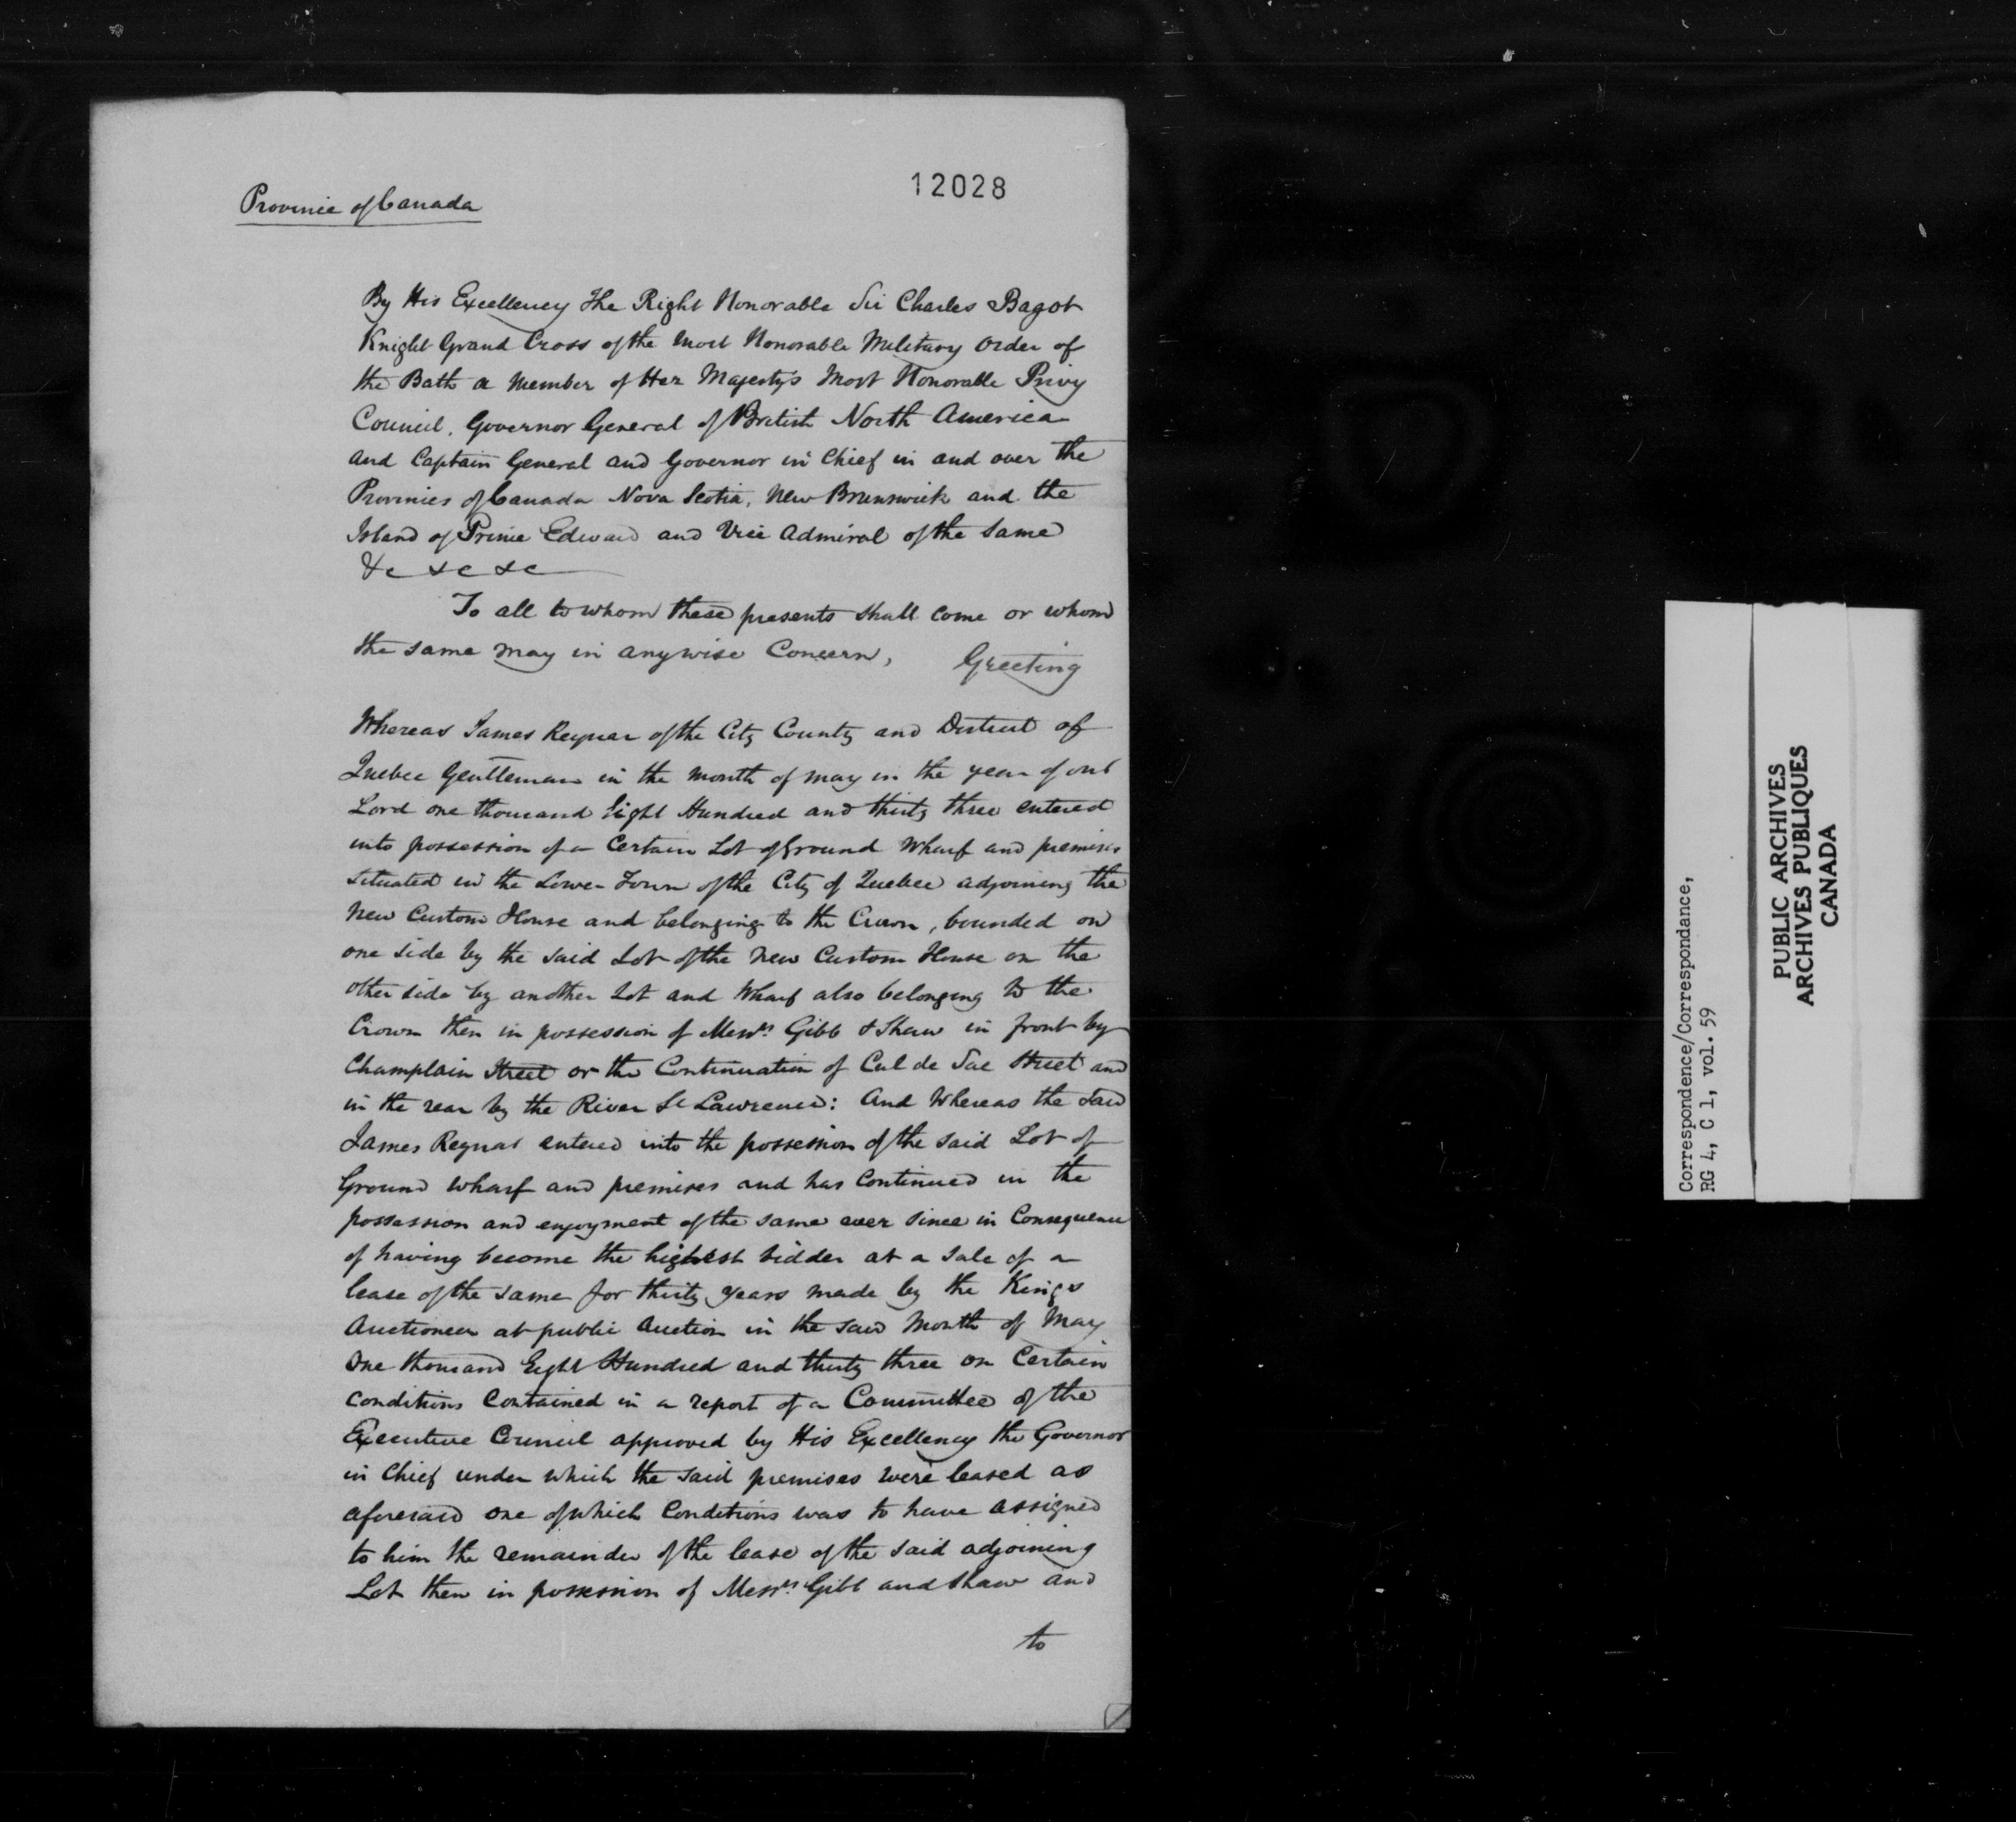 12028
Province of Canada
By His Excellency The Right Honorable Sir Charles Bagot
Knight Grand Cross of the most Honorable Military Order of
the Bath a Member of Her Majesty's Most Honorable Privy
Council, Governor General of British North America
and Captain General and Governor in Chief in and over the
Provinces of Canada Nova Scotia, New Brunswick and the
Island of Prince Edward and Vice Admiral of the Same
&c &c &c
To all to whom these presents shall come or whom
the same may in anywise Concern, Greeting
Whereas James Reynar of the City County and District of
Quebec Gentleman in the month of may in the year of our
Lord one thousand Eight Hundred and thirty three entered
into possession of a Certain Lot of Ground Wharf and premises
situated in the Lower Town of the City of Quebec adjoining the
New Custom House and belonging to the Crown, bounded on
one side by the said Lot of the New Custom House on the
other side by another Lot and Wharf also belonging to the
Crown then in possession of Messrs Gibb & Shaw in front by
Champlain Street or the Continuation of Cul de Sac Street and
in the rear by the River St Lawrence: And Whereas the said
James Reynar entered into the possession of the said Lot of
Ground wharf and premises and has Continued in the
possession and enjoyment of the same ever since in Consequence
of having become the highest bidder at a sale of a
lease of the same for thirty years made by the Kings
Auctioneer at public Auction in the said Month of May
One thousand Eight Hundred and thirty three on Certain
conditions Contained in a report of a Committee of the
Executive Council approved by His Excellency the Governor
in Chief under which the said premises were leased as
aforesaid one of which Conditions was to have assigned
to him the remainder of the lease of the said adjoining
Lot then in possession of Messrs Gibb and Shaw and
to
Correspondence/Correspondance,
RG 4, C 1, vol. 59
PUBLIC ARCHIVES
ARCHIVES PUBLIQUES
CANADA